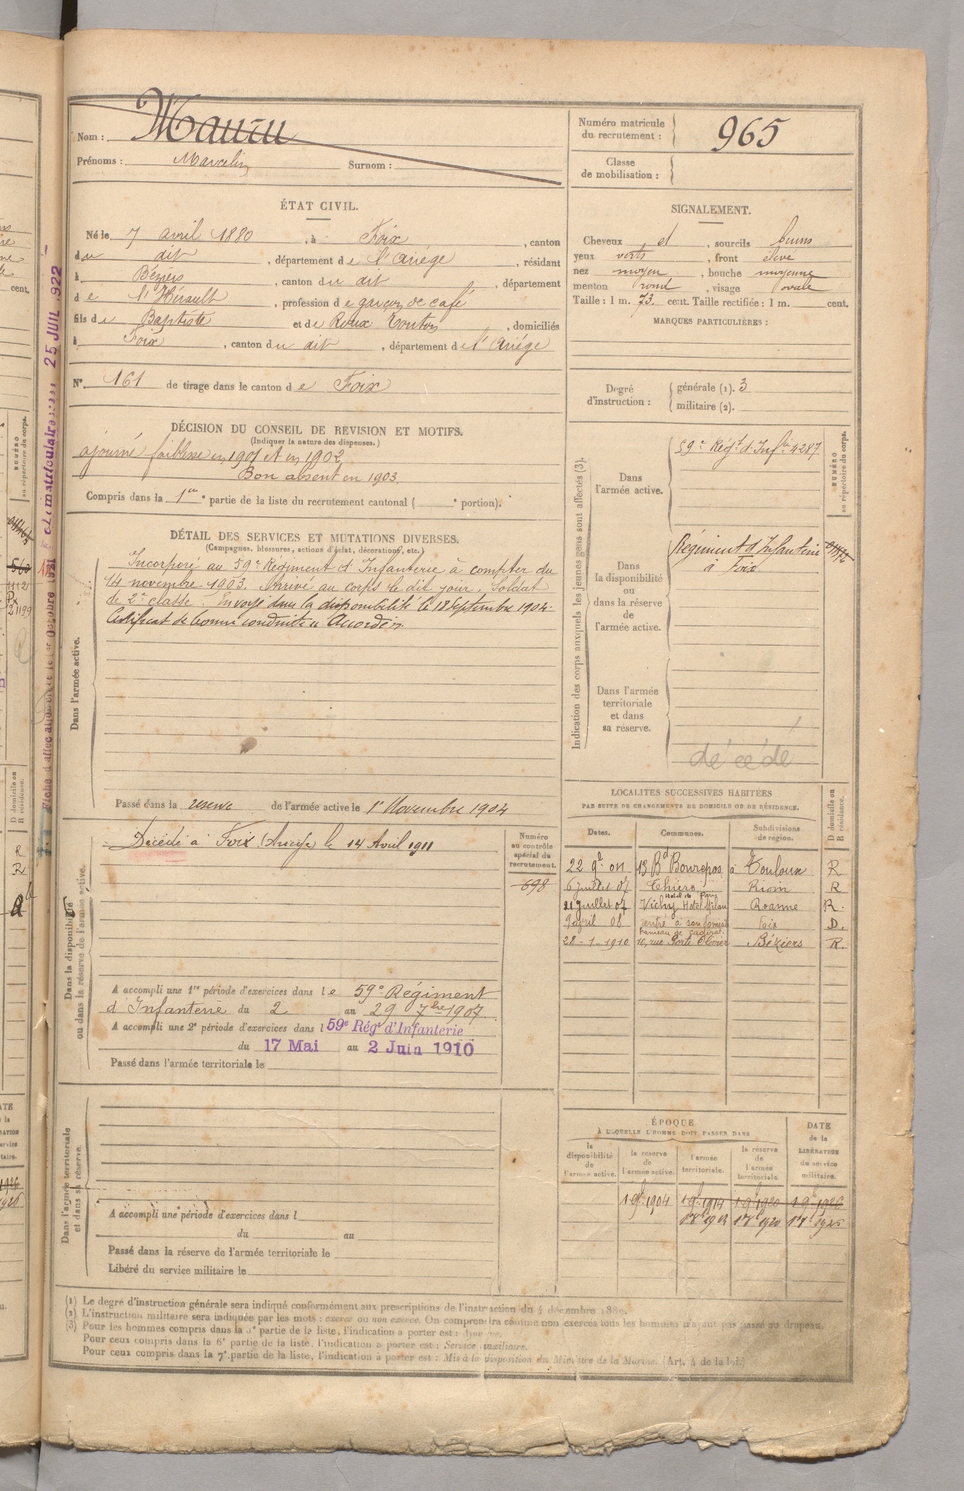 Nom : Mauru
Prénoms : Marcelin Surnom :
Numéro matricule du recrutement : 965
Classe de mobilisation :
ÉTAT CIVIL.
Né le 7 avril 1880, à Foix, canton
du dit, département de l'Ariège, résidant
à Béziers, canton du dit, département
de l'Hérault, profession de garçon de café
fils de Baptiste et de Roux Touton, domiciliés
à Foix, canton du dit, département de l'Ariége
N° 161 de tirage dans le canton de Foix
SIGNALEMENT.
Cheveux et, sourcils bruns
yeux verts, front élevé
nez moyen, bouche moyenne
menton rond, visage ovale
Taille : 1 m. 73 cent. Taille rectifiée : 1 m. cent.
MARQUES PARTICULIÈRES :
Degré d'instruction : générale (1). 3
militaire (2).
DÉCISION DU CONSEIL DE REVISION ET MOTIFS.
(Indiquer la nature des dispenses.)
ajourné faiblesse en 1901 et en 1902
Bon absent en 1903
Compris dans la 1re partie de la liste du recrutement cantonal ( e portion).
DÉTAIL DES SERVICES ET MUTATIONS DIVERSES.
(Campagnes, blessures, actions d'éclat, décorations, etc.)
Dans l'armée active.
Incorporé au 59e Régiment d'Infanterie à compter du
14 novembre 1903. Arrivé au corps le dit jour. Soldat
de 2e classe. Envoyé dans la disponibilité le 18 Septembre 1904.
Certificat de bonne conduite "Accordé"
Passé dans la réserve de l'armée active le 1r Novembre 1904
Indication des corps auxquels les jeunes gens sont affectés (3).
NUMÉRO au répertoire du corps.
Dans l'armée active.
59e Régt d'Infie 4287
Dans la disponibilité ou dans la réserve de l'armée active.
Régiment d'Infanterie
à Foix
Dans l'armée territoriale et dans sa réserve.
décédé
Dans la disponibilité ou dans la réserve de l'armée active.
Décédé à Foix (Ariège) le 14 Avril 1911
Numéro au contrôle spécial du recrutement.
698
A accompli une 1re période d'exercices dans le 59e Régiment
d'Infanterie du 2 au 29 7bre 1907
A accompli une 2e période d'exercices dans l 59e Régt d'Infanterie
du 17 Mai au 2 Juin 1910
Passé dans l'armée territoriale le
LOCALITÉS SUCCESSIVES HABITÉES
PAR SUITE DE CHANGEMENTS DE DOMICILE OU DE RÉSIDENCE.
Dates. Communes. Subdivisions de région. D domicile ou R résidence.
13 Bd Bourepos à Toulouse R
6 juillet 07 Riom R
21 juillet 07 Vichy Hotel Roanne R.
9 avril 08 Foix D.
28-1-1910 Béziers R.
Dans l'armée territoriale et dans sa réserve.
A accompli une période d'exercices dans l
du au
Passé dans la réserve de l'armée territoriale le
Libéré du service militaire le
ÉPOQUE
À LAQUELLE L'HOMME DOIT PASSER DANS
la disponibilité de l'armée active. la réserve de l'armée active. l'armée territoriale. la réserve de l'armée territoriale.
DATE de la LIBÉRATION du service militaire.
(1) Le degré d'instruction générale sera indiqué conformément aux prescriptions de l'instruction du 4 décembre 1889.
(2) L'instruction militaire sera indiquée par les mots : exercé ou non exercé. On comprendra comme non exercés tous les hommes n'ayant pas passé au drapeau.
(3) Pour les hommes compris dans la 5e partie de la liste, l'indication à porter est : Ajourné.
Pour ceux compris dans la 6e partie de la liste, l'indication à porter est : Service auxiliaire.
Pour ceux compris dans la 7e partie de la liste, l'indication à porter est : Mis à la disposition du Ministre de la Marine. (Art. 4 de la loi.)